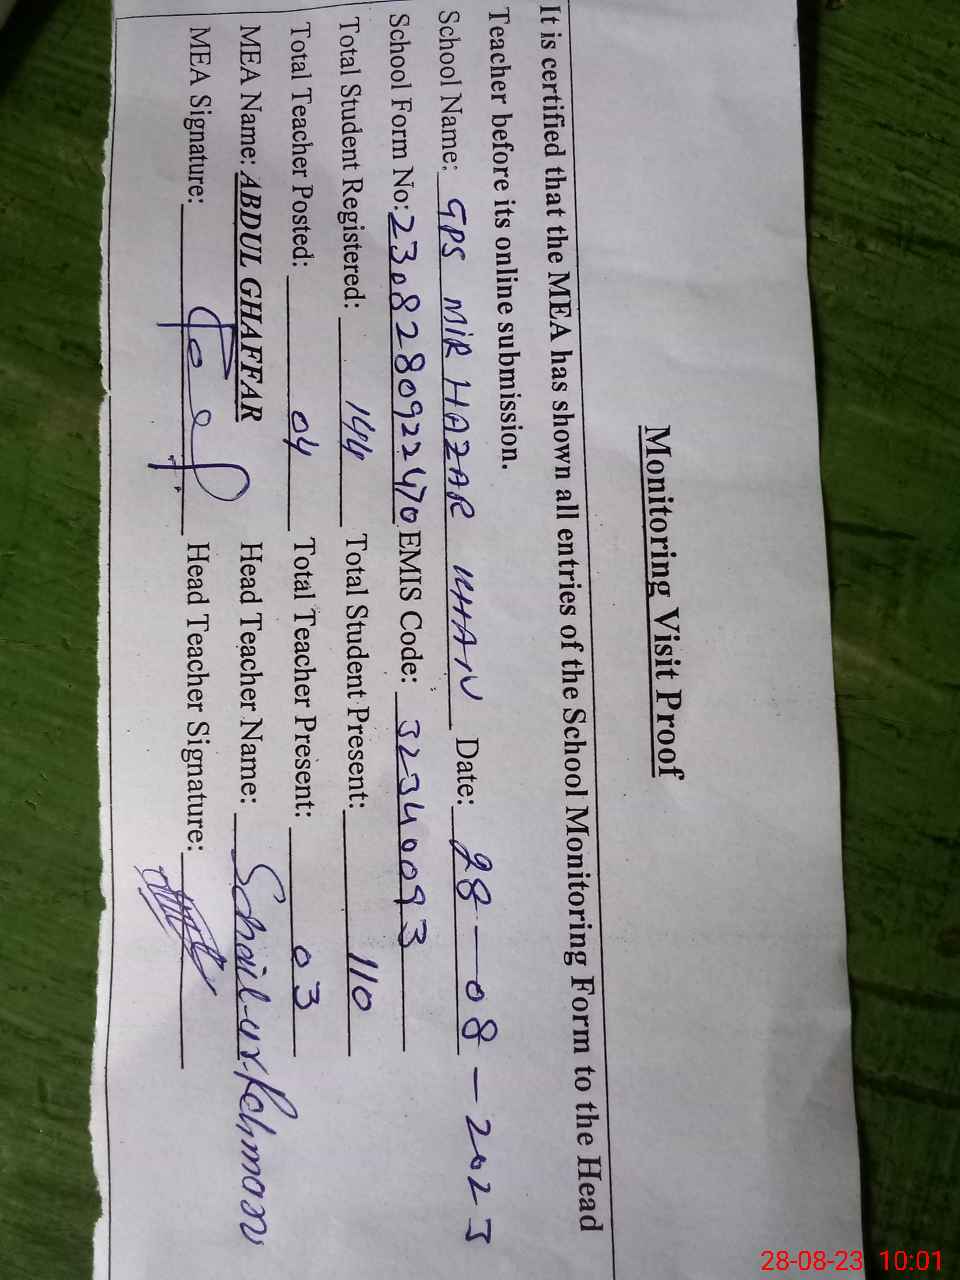 Monitoring Visit Proof
It is certified that the MEA has shown all entries of the School Monitoring Form to the Head
Teacher before its online submission.
School Name: GPS MIR HAZAR KHAN Date: 28-08-2023
School Form No: 230828092470 EMIS Code: 32340093
Total Student Registered: 144 Total Student Present: 110
Total Teacher Posted: 04 Total Teacher Present: 03
MEA Name: ABDUL GHAFFAR Head Teacher Name: Sohail-ur-Rehman
MEA Signature: Head Teacher Signature:
28-08-23 10:01